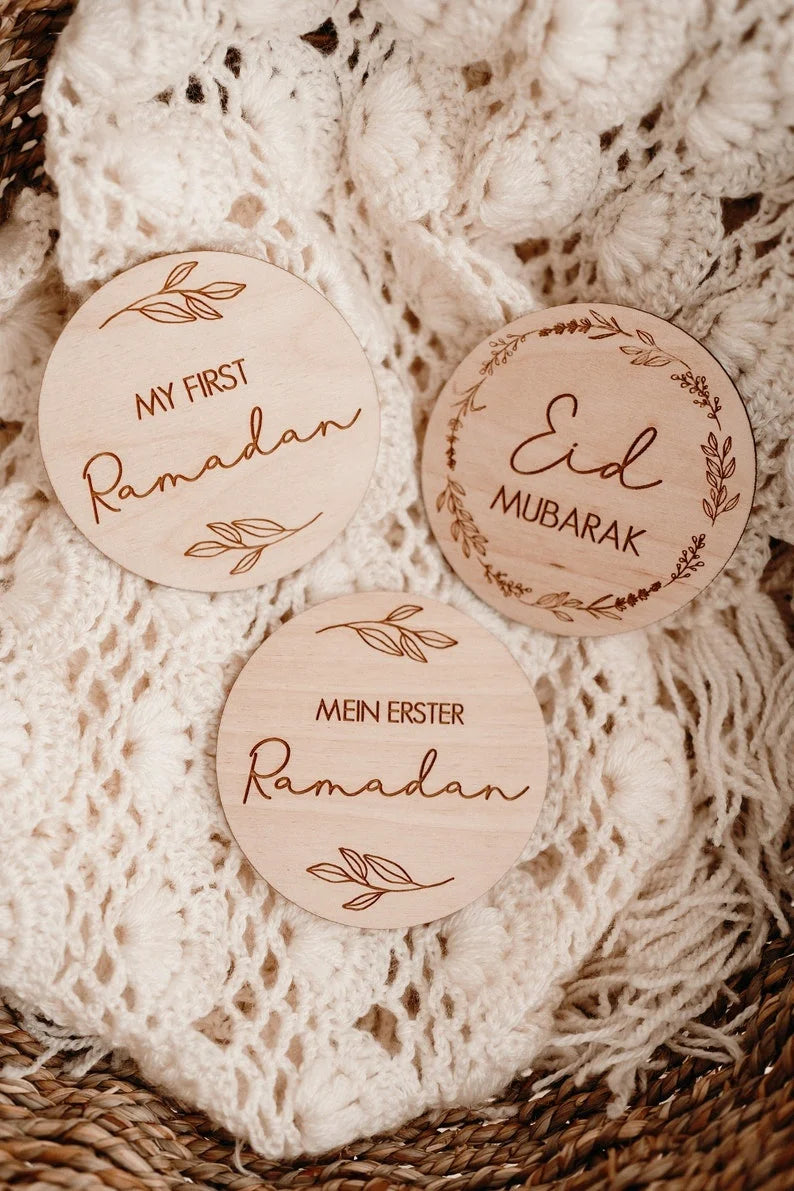 MY FIRST
Ramadan
Eid
MUBARAK
MEIN ERSTER
Ramadan